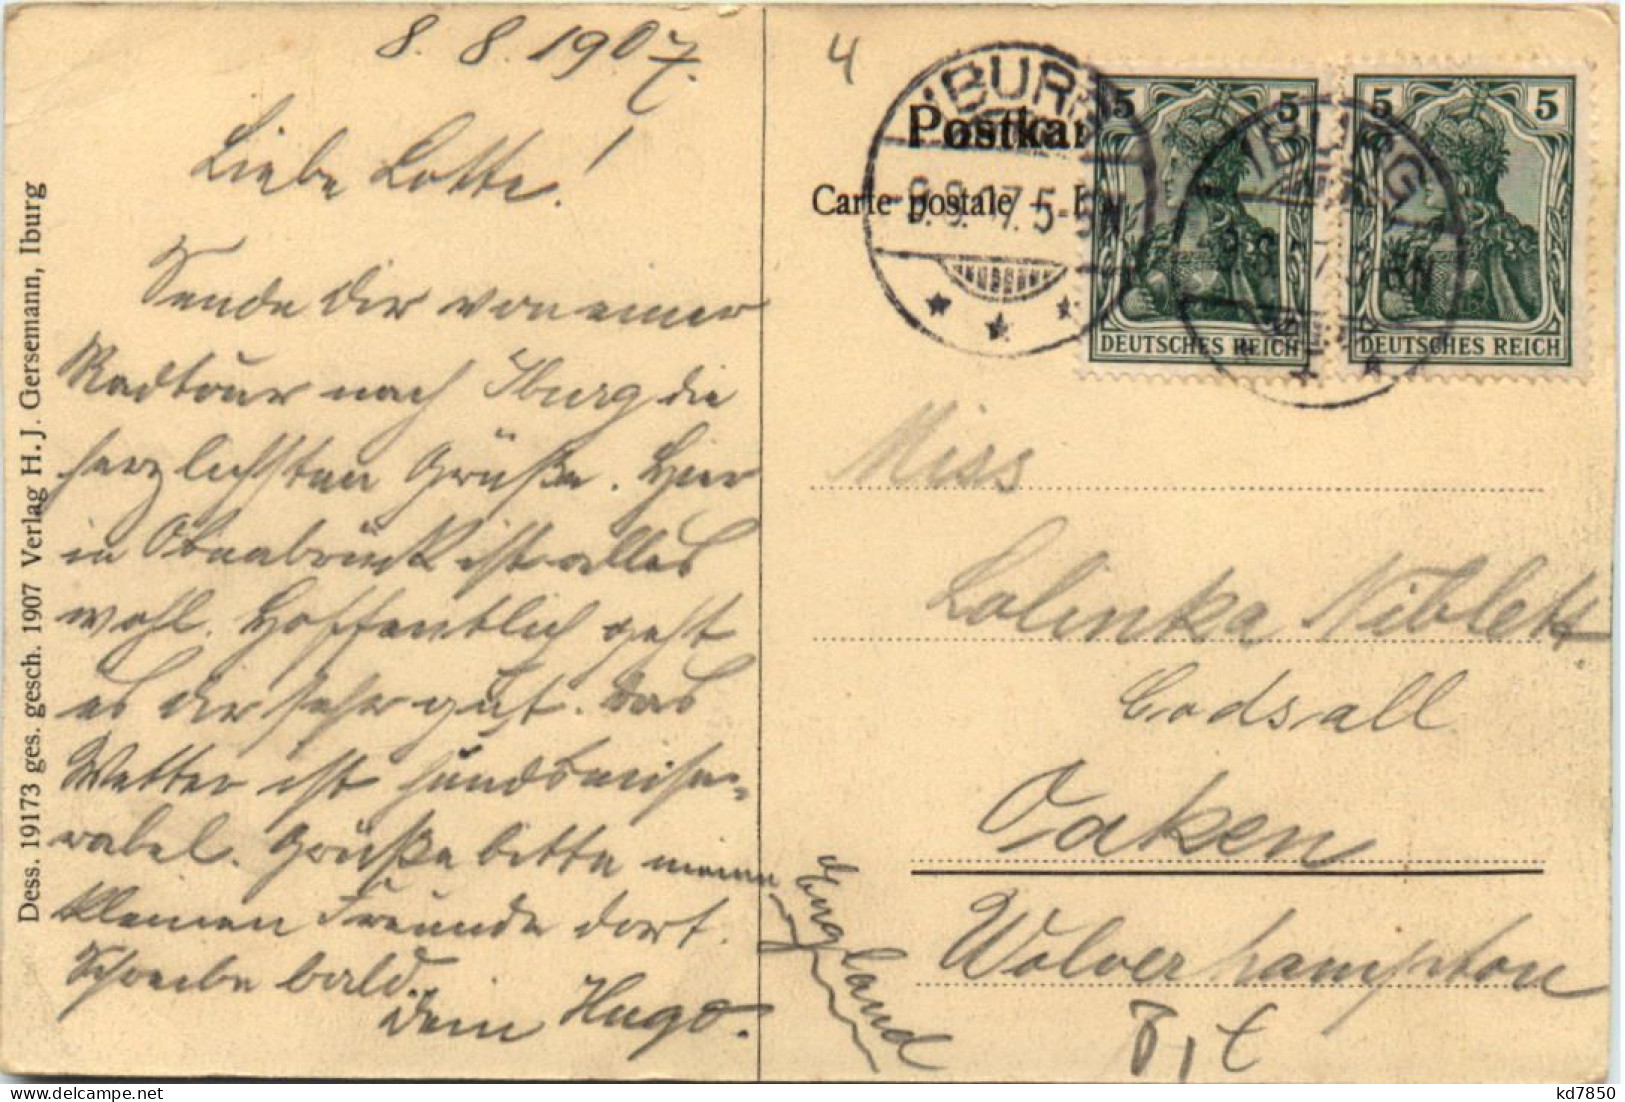 8. 8. 1907.
Liebe Lotte!
Sende Dir von einer
Radtour nach Iburg die
herzlichsten Grüße. Hier
in Osnabrück ist alles
wohl. Hoffentlich geht
es Dir sehr gut. Das
Wetter ist hundsmise-
rabel. Grüße bitte meinen
kleinen Freunde dort.
Schreibe bald.
Dein Hugo.
Dess. 19173 ges. gesch. 1907 Verlag H. J. Gersemann, Iburg
4
Postkar
Carte postale
IBURG
8.8.07.5-6N
5 5
DEUTSCHES REICH
5 5
DEUTSCHES REICH
IBURG
Miss
Lolinka Niblett
Codsall
Oaken
Wolverhampton
England
kd7850